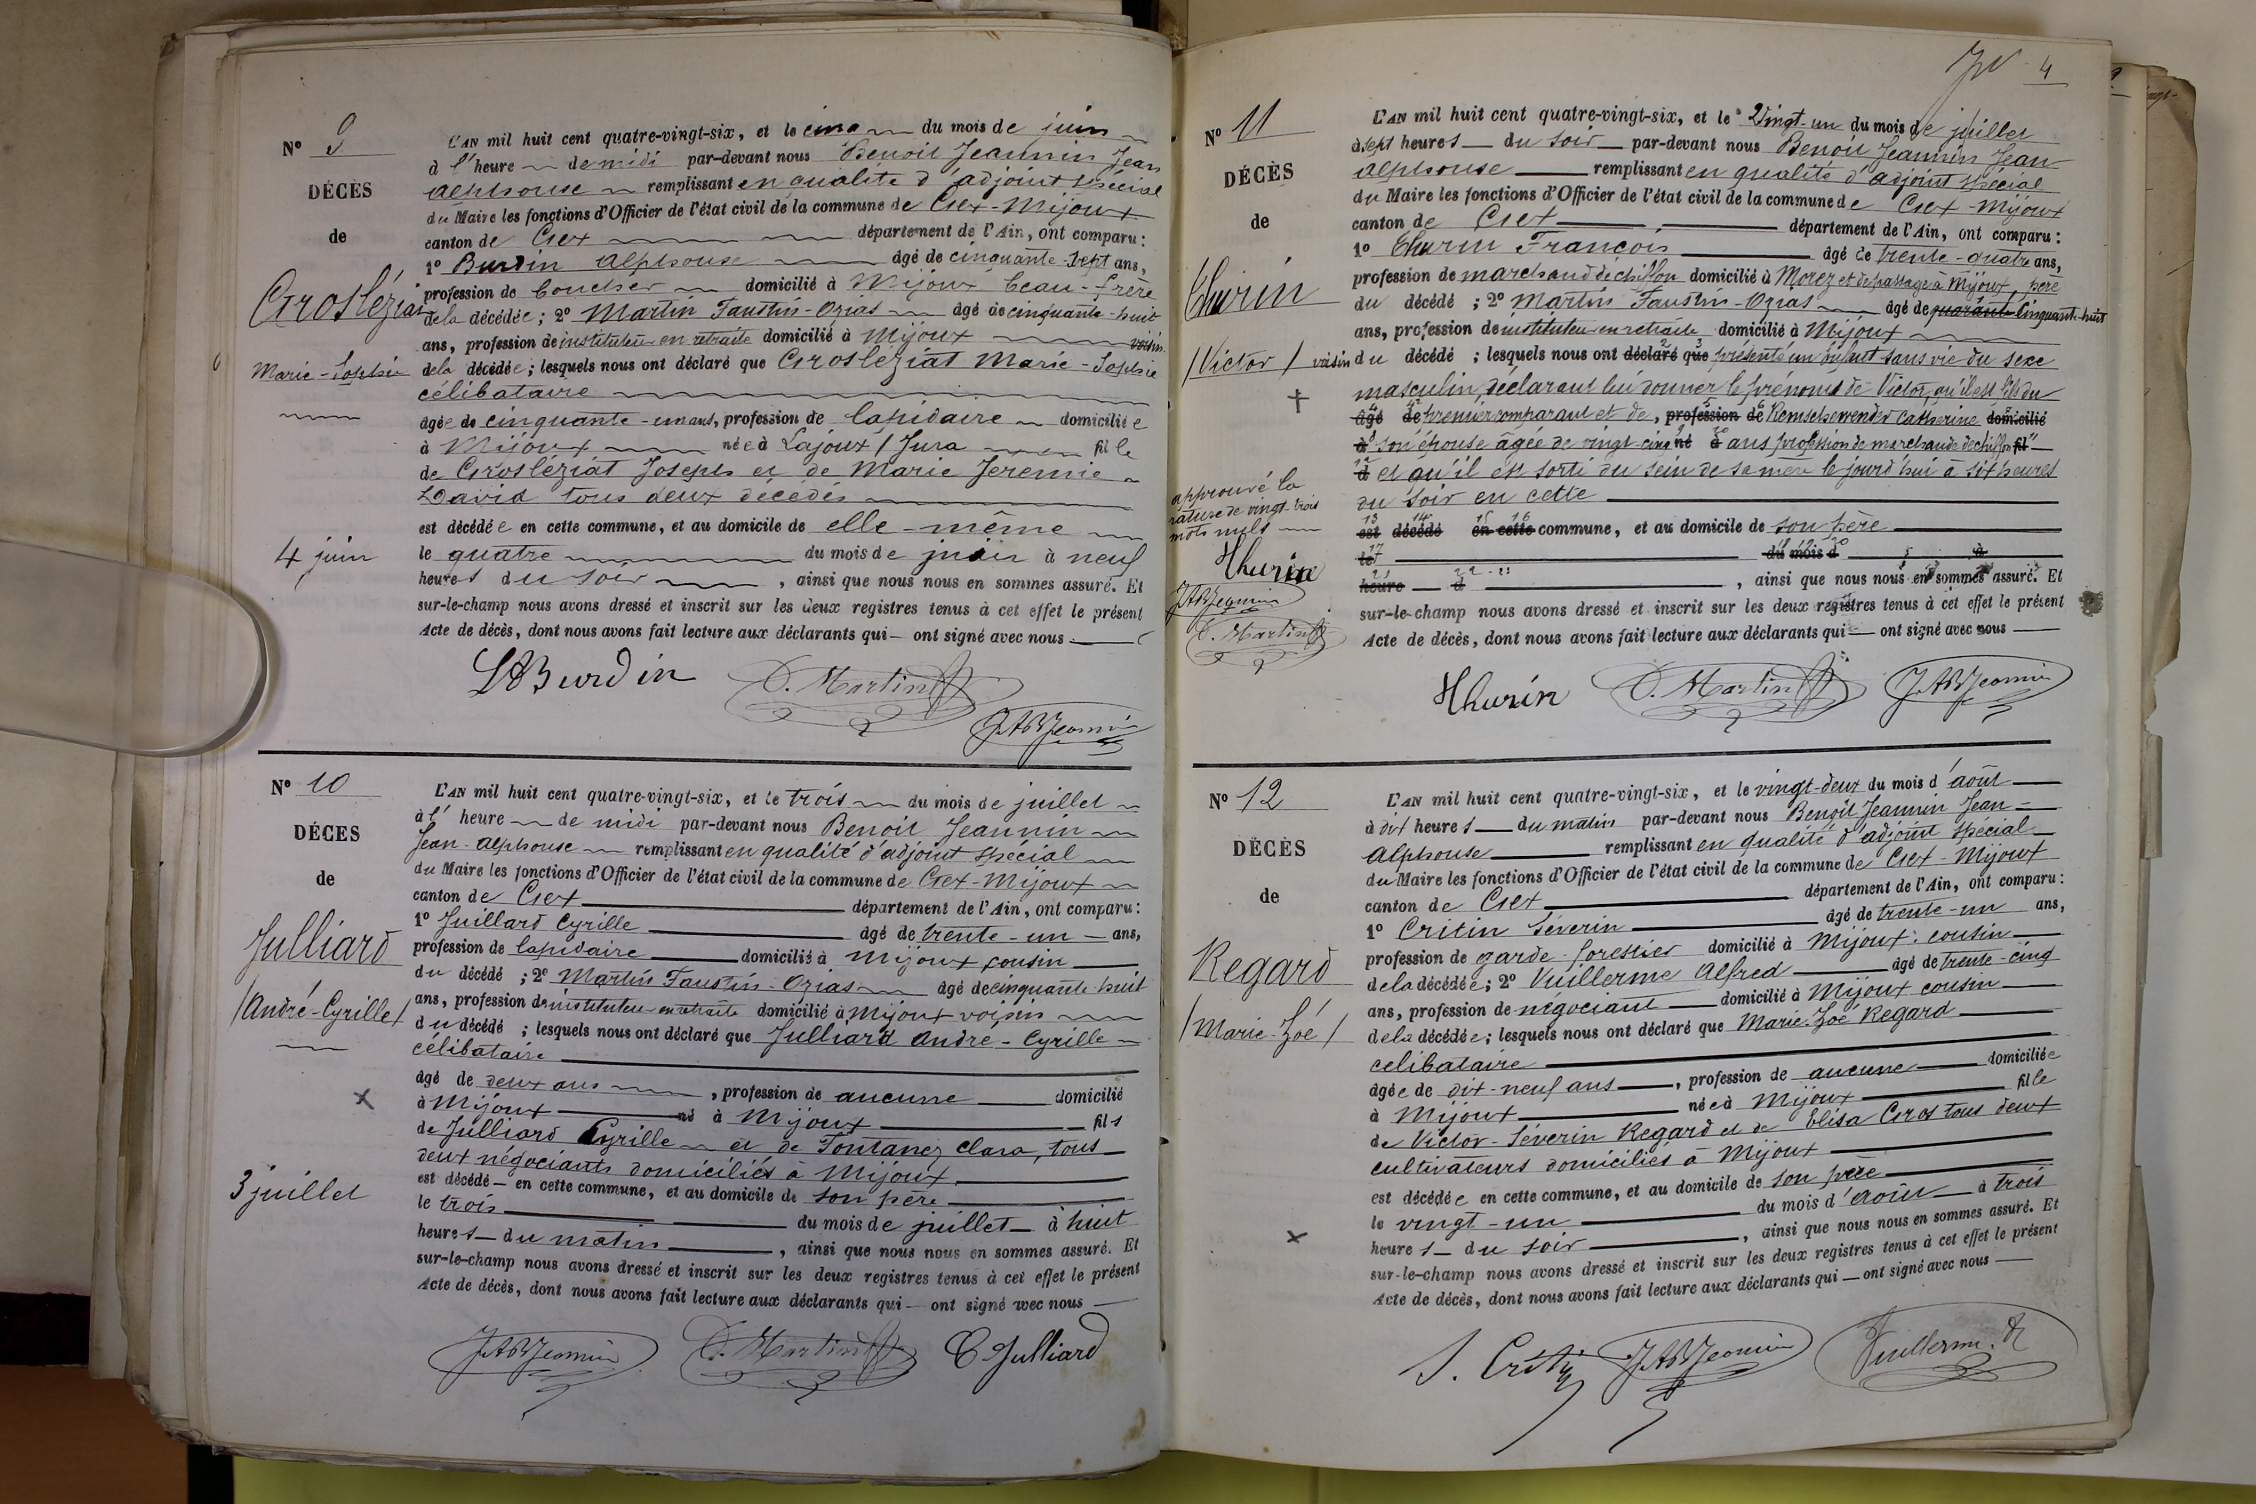 N° 9
DÉCÈS
de
Grosléziat
Marie-Sophie
4 juin
L'AN mil huit cent quatre-vingt-six, et le cinq du mois de juin
à l'heure de midi par-devant nous Benoit Jeannin Jean
Alphonse remplissant en qualité d'adjoint spécial
du Maire les fonctions d'Officier de l'état civil de la commune de Gex-Mijoux
canton de Gex département de l'Ain, ont comparu :
1° Burdin Alphonse âgé de cinquante-sept ans,
profession de boucher domicilié à Mijoux beau-frère
de la décédée ; 2° Martin Faustin-Ozias âgé de cinquante-huit
ans, profession de instituteur en retraite domicilié à Mijoux voisin
de la décédée ; lesquels nous ont déclaré que Grosléziat Marie-Sophie
célibataire
âgée de cinquante-un ans, profession de lapidaire domiciliée
à Mijoux née à Lajoux / Jura fille
de Grosléziat Joseph et de Marie Jeremie
David tous deux décédés
est décédée en cette commune, et au domicile de elle-même
le quatre du mois de juin à neuf
heures du soir , ainsi que nous nous en sommes assuré. Et
sur-le-champ nous avons dressé et inscrit sur les deux registres tenus à cet effet le présent
Acte de décès, dont nous avons fait lecture aux déclarants qui ont signé avec nous
Burdin O. Martin
JABJeannin
N° 10
DÉCES
de
Julliard
/André-Cyrille/
3 juillet
L'AN mil huit cent quatre-vingt-six, et le trois du mois de juillet
à l' heure de midi par-devant nous Benoit Jeannin
Jean-Alphonse remplissant en qualité d'adjoint spécial
du Maire les fonctions d'Officier de l'état civil de la commune de Gex-Mijoux
canton de Gex département de l'Ain, ont comparu :
1° Juillard Cyrille âgé de trente-un ans,
profession de lapidaire domicilié à Mijoux cousin
du décédé ; 2° Martin Faustin-Ozias âgé de cinquante-huit
ans, profession de instituteur en retraite domicilié à Mijoux voisin
du décédé ; lesquels nous ont déclaré que Julliard André-Cyrille
célibataire
âgé de deux ans , profession de aucune domicilié
à Mijoux né à Mijoux fils
de Julliard Cyrille et de Fontanez Clara, tous
deux négociants domiciliés à Mijoux
est décédé en cette commune, et au domicile de son père
le trois du mois de juillet à huit
heures du matin , ainsi que nous nous en sommes assuré. Et
sur-le-champ nous avons dressé et inscrit sur les deux registres tenus à cet effet le présent
Acte de décès, dont nous avons fait lecture aux déclarants qui ont signé avec nous
JABJeannin O. Martin C Julliard
4
N° 11
DÉCÈS
de
Thurin
/Victor/
approuvé la
rature de vingt-trois
mots nuls
Thurin
JABJeannin
O. Martin
L'AN mil huit cent quatre-vingt-six, et le Vingt-un du mois de juillet
à sept heures du soir par-devant nous Benoit Jeannin Jean
Alphonse remplissant en qualité d'adjoint spécial
du Maire les fonctions d'Officier de l'état civil de la commune de Gex-Mijoux
canton de Gex département de l'Ain, ont comparu :
1° Thurin François âgé de trente-quatre ans,
profession de marchand de chiffon domicilié à Morez et de passage à Mijoux, père
du décédé ; 2° Martin Faustin-Ozias âgé de quarante cinquante-huit
ans, profession de instituteur en retraite domicilié à Mijoux
voisin du décédé ; lesquels nous ont déclaré que présenté un enfant sans vie du sexe
masculin, déclarant lui donner le prénoms de Victor, qu'il est fils du
âgé de premier comparant et de, profession de Catherine domicilié
à son épouse âgée de vingt-cinq né à ans profession de marchande de chiffon fil
d et qu'il est sorti du sein de sa mère le jourd'hui à six heures
du soir en cette
est décédé en cette commune, et au domicile de son père
le du mois d à
heure d , ainsi que nous nous en sommes assuré. Et
sur-le-champ nous avons dressé et inscrit sur les deux registres tenus à cet effet le présent
Acte de décès, dont nous avons fait lecture aux déclarants qui ont signé avec nous
Thurin O. Martin JABJeannin
N° 12
DÉCÈS
de
Regard
/Marie-Zoé/
L'AN mil huit cent quatre-vingt-six, et le vingt-deux du mois d'août
à dix heures du matin par-devant nous Benoit Jeannin Jean-
Alphonse remplissant en qualité d'adjoint spécial
du Maire les fonctions d'Officier de l'état civil de la commune de Gex-Mijoux
canton de Gex département de l'Ain, ont comparu :
1° Critin Séverin âgé de trente-un ans,
profession de garde-forestier domicilié à Mijoux : cousin
de la décédée ; 2° Vuillerme Alfred âgé de trente-cinq
ans, profession de négociant domicilié à Mijoux cousin
de la décédée ; lesquels nous ont déclaré que Marie-Zoé Regard
celibataire
âgée de dix-neuf ans , profession de aucune domiciliée
à Mijoux née à Mijoux fille
de Victor-Séverin Regard et de Elisa Gros tous deux
cultivateurs domiciliés à Mijoux
est décédée en cette commune, et au domicile de son père
le vingt-un du mois d'août à trois
heures du soir , ainsi que nous nous en sommes assuré. Et
sur-le-champ nous avons dressé et inscrit sur les deux registres tenus à cet effet le présent
Acte de décès, dont nous avons fait lecture aux déclarants qui ont signé avec nous
S. Critin JABJeannin Vuillerme A